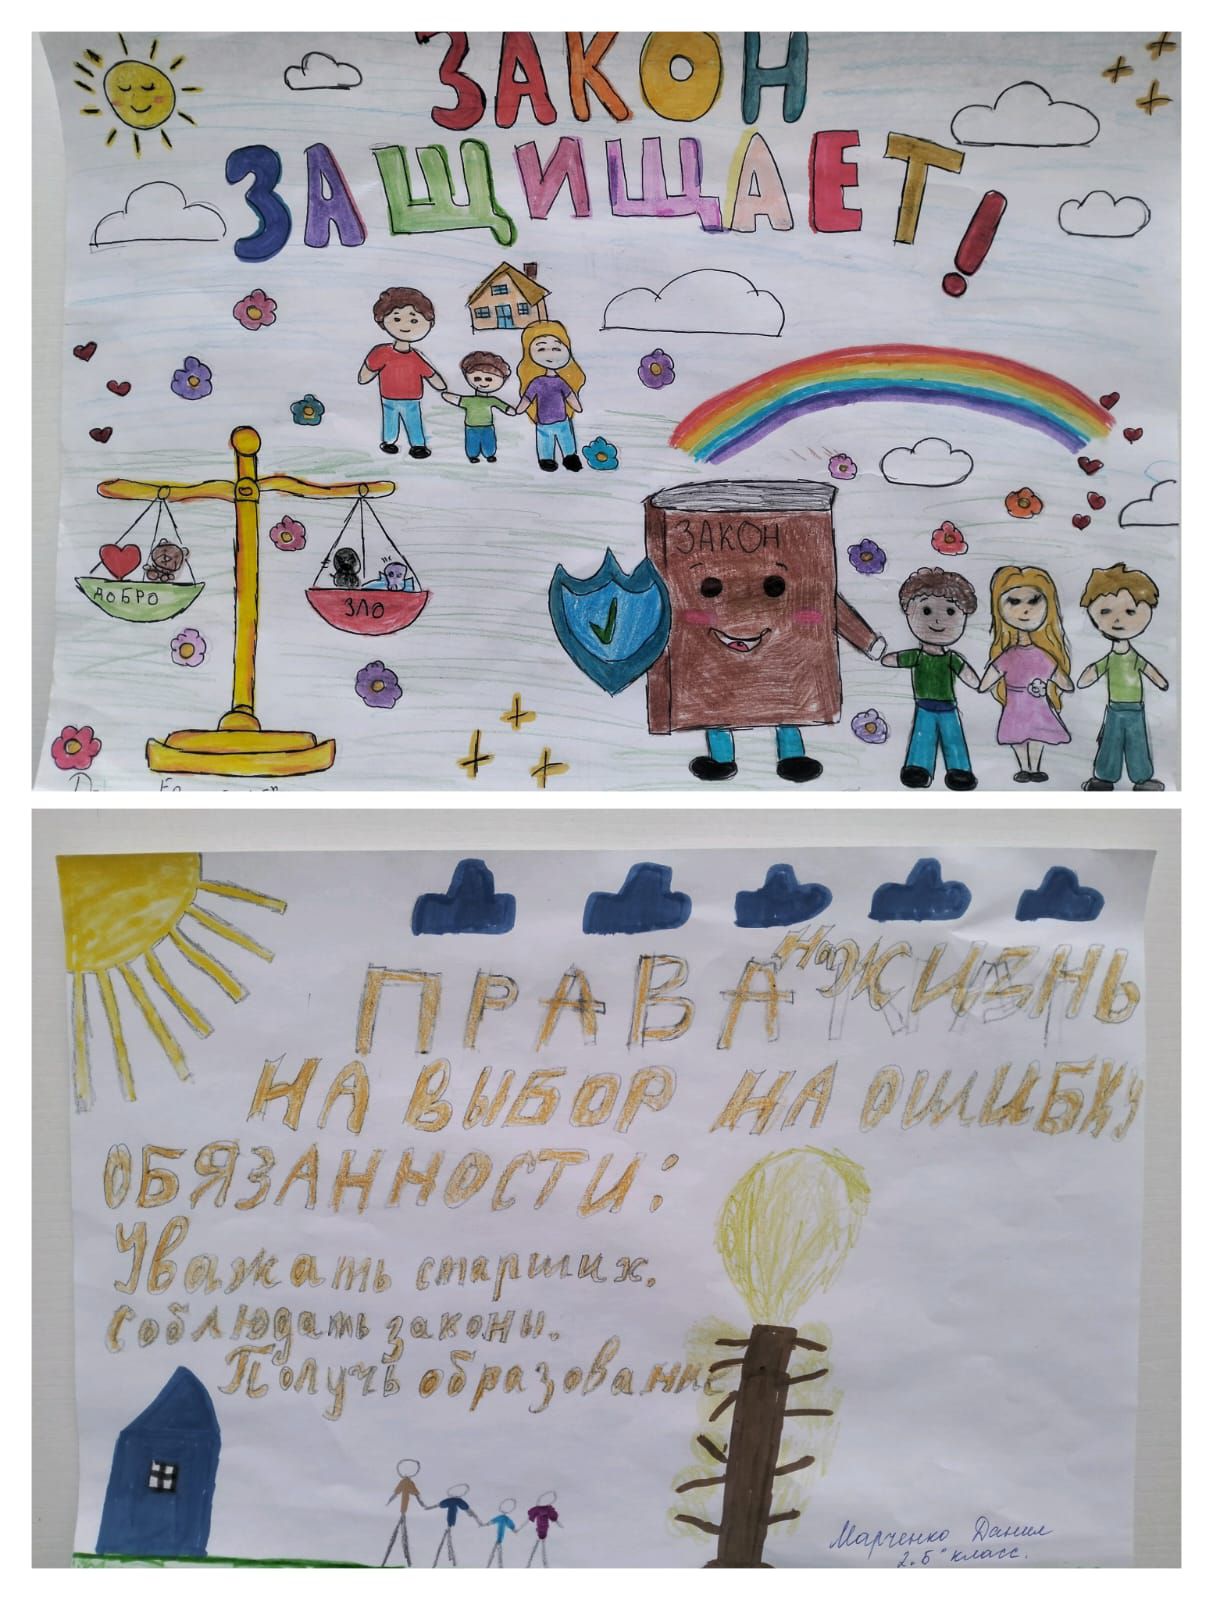 ЗАКОН
ЗАЩИЩАЕТ!
ДОБРО
ЗЛО
ЗАКОН
ПРАВА на ЖИЗНЬ
НА ВЫБОР НА ОШИБКУ
ОБЯЗАННОСТИ:
Уважать старших.
Соблюдать законы.
Получь образование
Марченко Данил
2 "Б" класс.